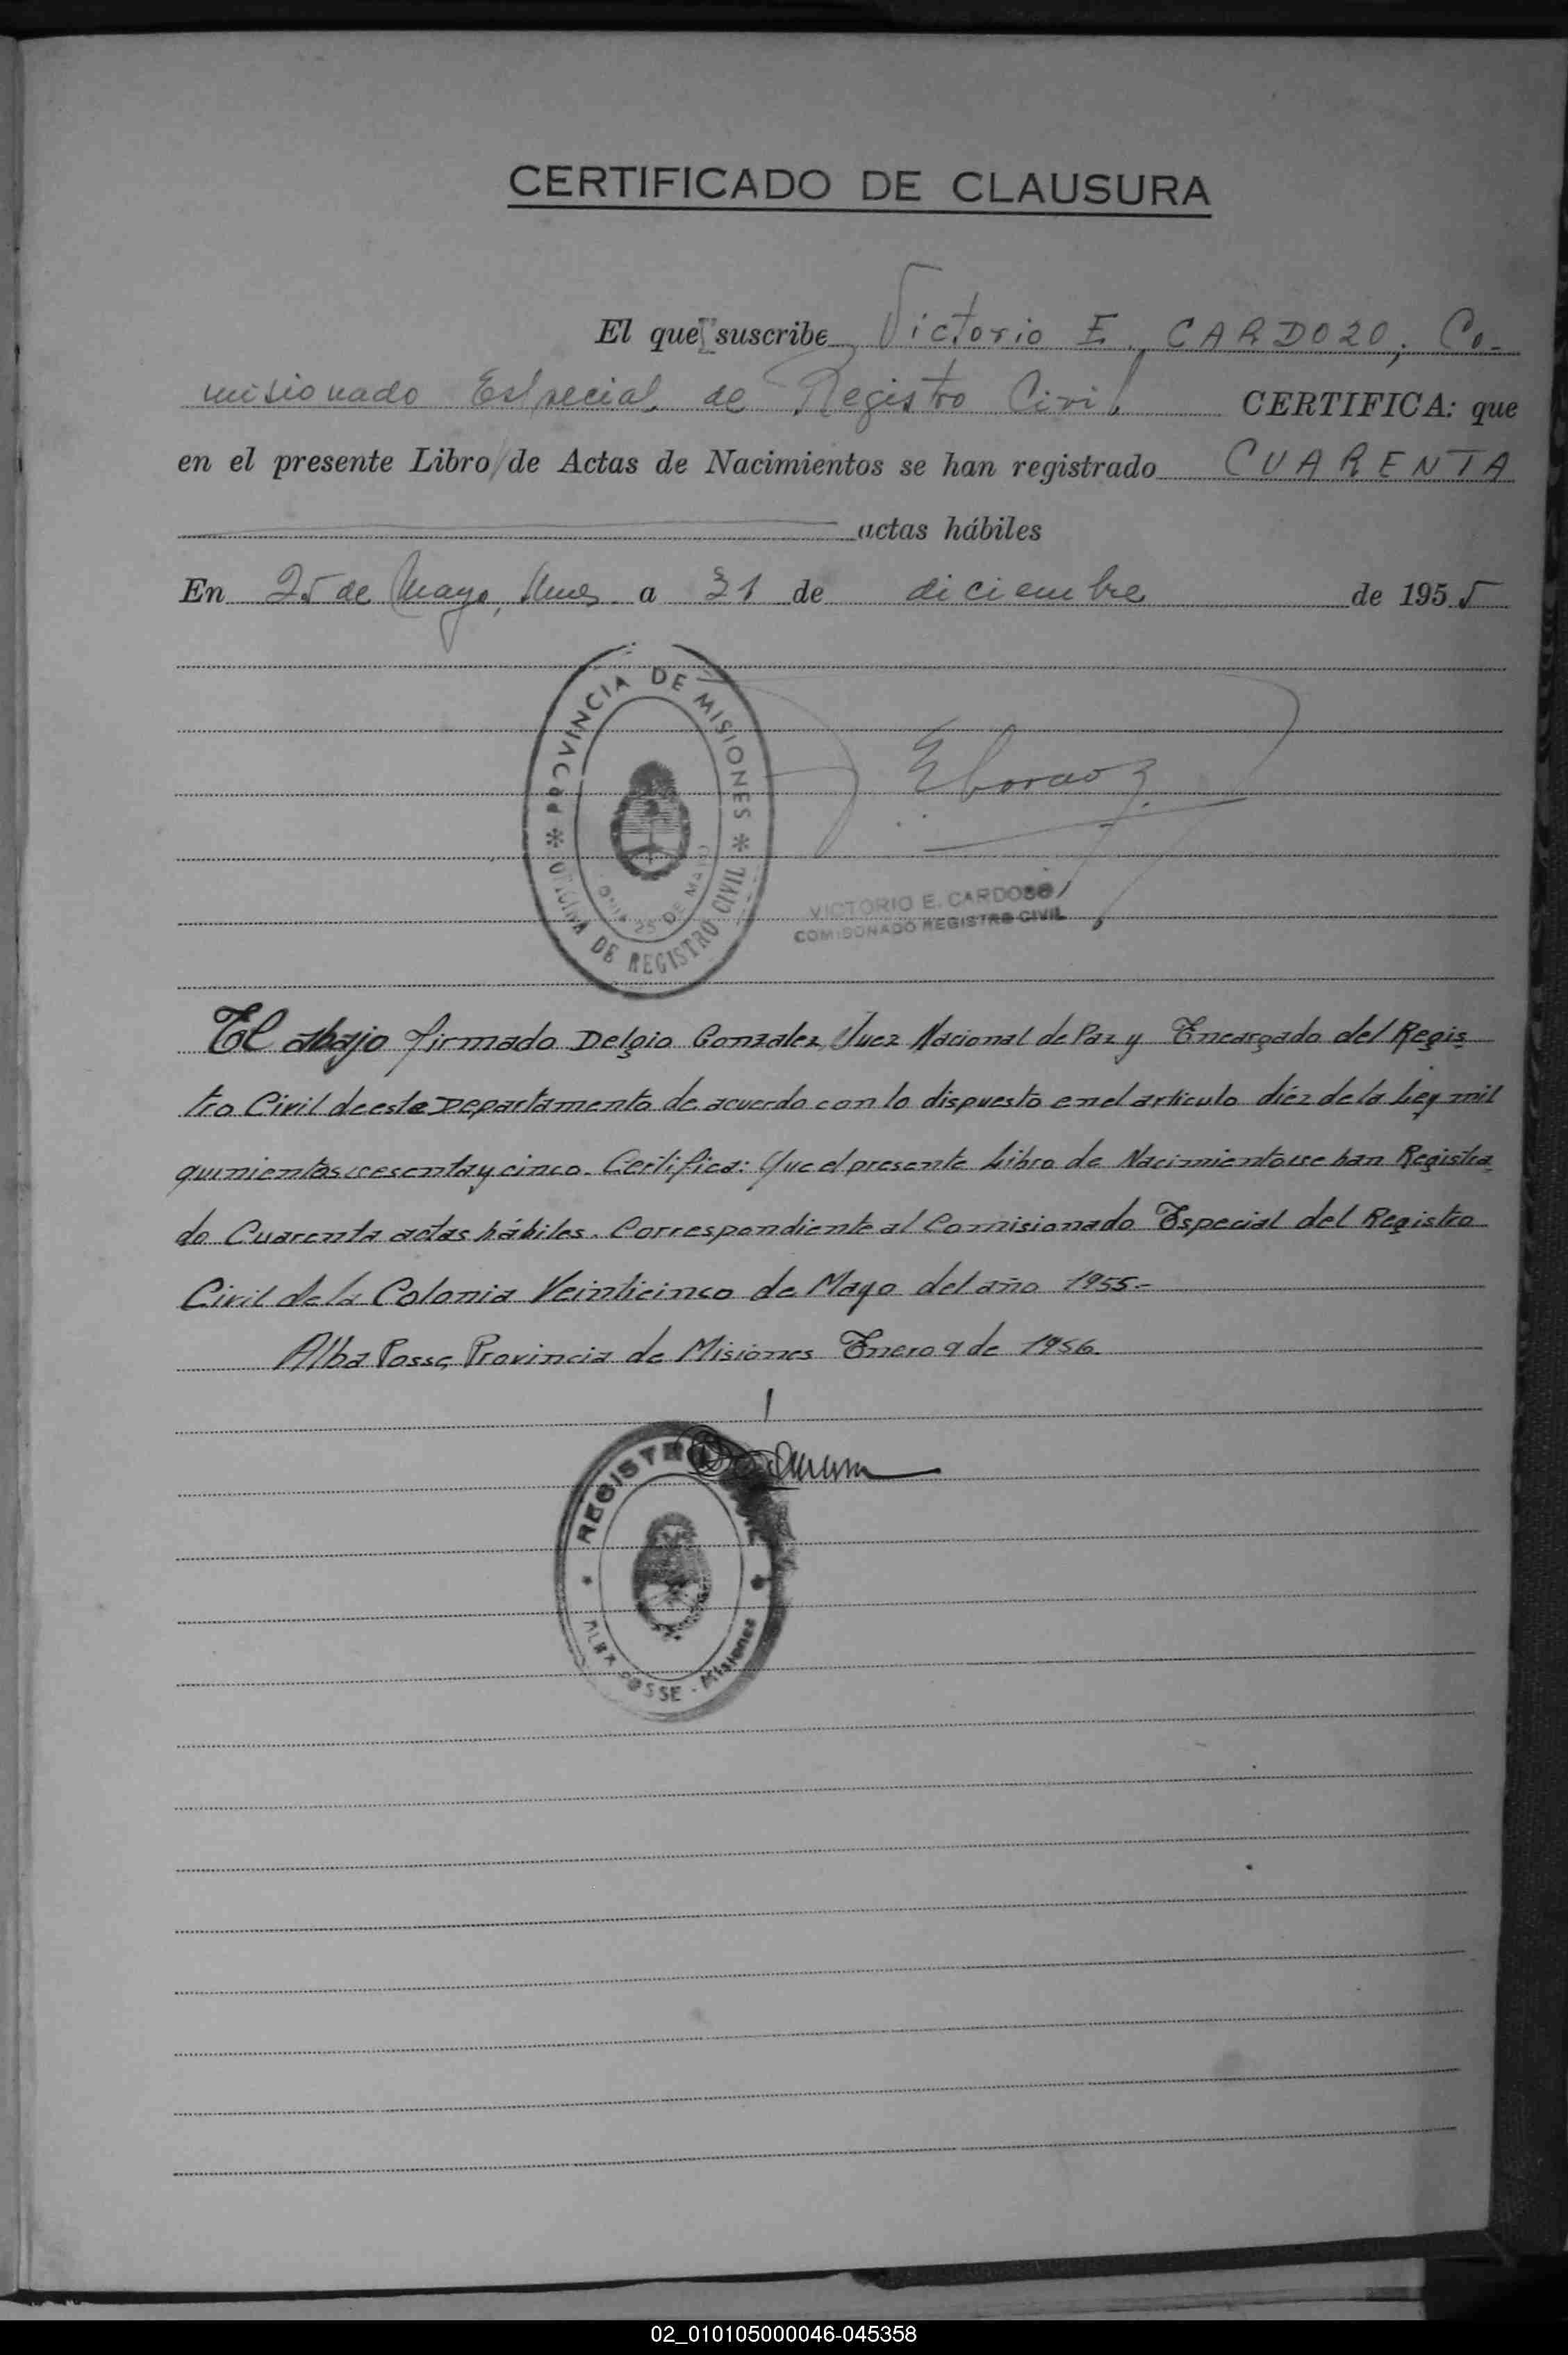 CERTIFICADO DE CLAUSURA
El que suscribe Victorio E. CARDOZO, Co-
misionado Especial de Registro Civil CERTIFICA: que
en el presente Libro de Actas de Nacimientos se han registrado CUARENTA
actas hábiles
En 25 de Mayo, Mnes a 31 de diciembre de 1955
PROVINCIA DE MISIONES
25 DE MAYO
OFICINA DE REGISTRO CIVIL
VICTORIO E. CARDOSO
COMISONADO REGISTRO CIVIL
El abajo firmado Delgio Gonzalez, Juez Nacional de Paz y Encargado del Regis
tro Civil de este Departamento de acuerdo con lo dispuesto en el articulo diéz de la Ley mil
quinientos cesenta y cinco. Certifica: Que el presente Libro de Nacimientos se han Registra
do Cuarenta actas hábiles. Correspondiente al Comisionado Especial del Registro
Civil de la Colonia Veinticinco de Mayo del año 1955.-
Alba Posse, Provincia de Misiones Enero 9 de 1956.
REGISTRO
ALBA POSSE - Misiones
02_010105000046-045358